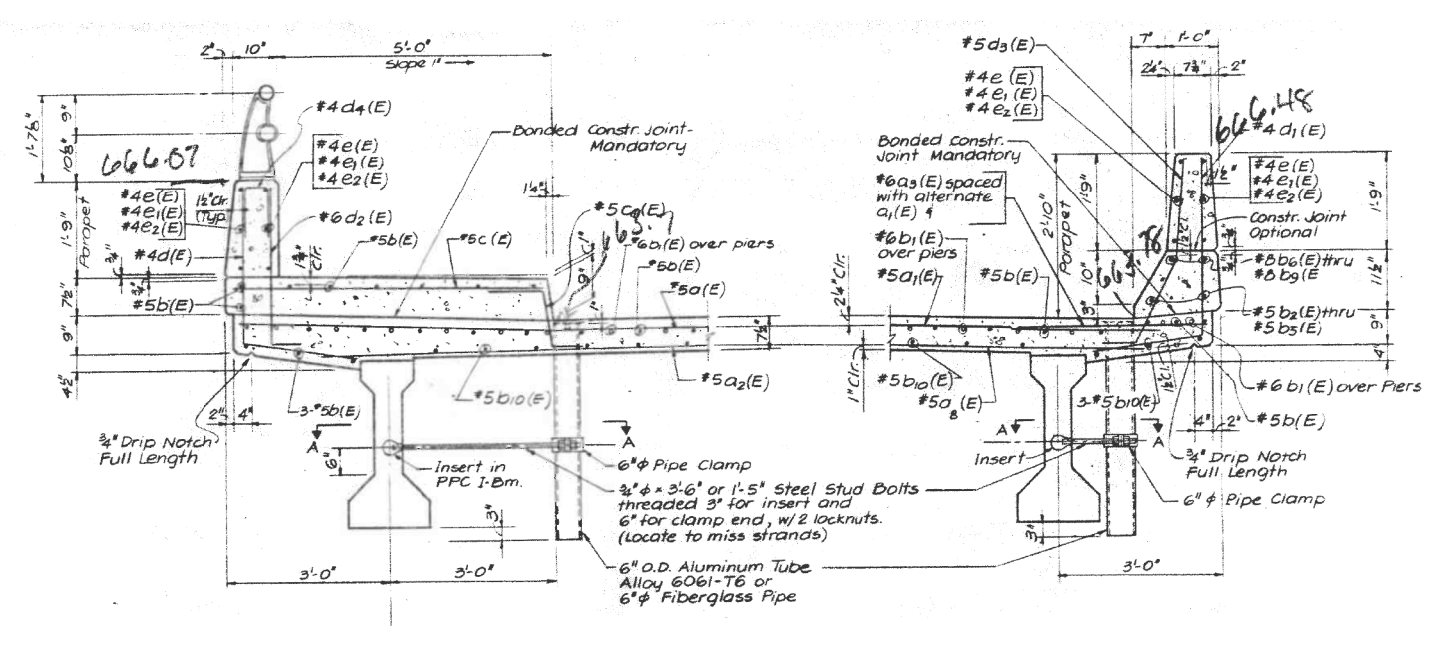 2"
10"
5'-0"
Slope 1"
1'-7⅞"
9"
10⅞"
666.07
#4d4(E)
#4e(E)
#4e1(E)
#4e2(E)
Bonded Constr. Joint-
Mandatory
#4e(E)
#4e1(E)
#4e2(E)
1½"Clr.
(Typ.)
#6d2(E)
#4d(E)
1'-9"
Parapet
¾"
¾"
7½"
9"
4½"
#5b(E)
#5b(E)
#5c(E)
1¼"
1"
9"
1"
#6b1(E) over piers
#5b(E)
#5a(E)
7½"
#5a2(E)
#5b10(E)
3-#5b(E)
2"
4"
¾" Drip Notch
Full Length
A
A
6"
Insert in
PPC I-Bm.
3"
6"ϕ Pipe Clamp
¾"ϕ × 3'-6" or 1'-5" Steel Stud Bolts
threaded 3" for insert and
6" for clamp end, w/2 locknuts.
(Locate to miss strands)
6" O.D. Aluminum Tube
Alloy 6061-T6 or
6"ϕ Fiberglass Pipe
3'-0"
3'-0"
#5d3(E)
#4e(E)
#4e1(E)
#4e2(E)
7"
1'-0"
2¼"
7¾"
2"
666.48
#4d1(E)
Bonded Constr.
Joint Mandatory
#6a3(E) spaced
with alternate
a1(E)
#6b1(E)
over piers
#5a1(E)
#5b(E)
2¼"Clr.
1"Clr.
2'-10"
Parapet
1'-9"
10"
3"
1½"
1½"Cl.
#4e(E)
#4e1(E)
#4e2(E)
Constr. Joint
Optional
¾"
#8b6(E)thru
#8b9(E
#5b2(E)thru
#5b5(E)
1'-9"
11½"
9"
4"
#6b1(E) over Piers
#5b(E)
#5b10(E)
#5a8(E)
3-#5b10(E)
1½"Cl.
4"
2"
¾" Drip Notch
Full Length
A
A
Insert
6"ϕ Pipe Clamp
3"
3'-0"